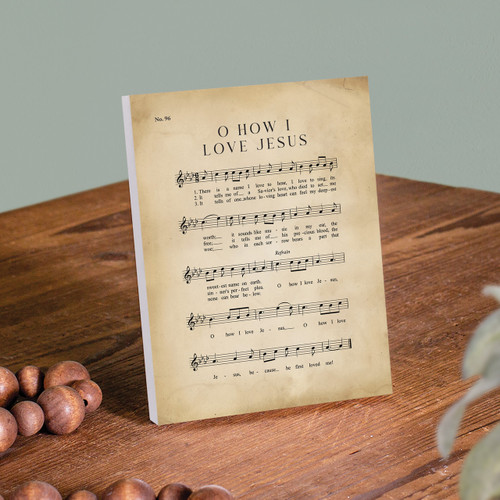 No. 96
O HOW I
LOVE JESUS
1. There is a name I love to hear, I love to sing its
2. It tells me of a Savior's love, who died to set me
3. It tells of one, whose loving heart can feel my deepest
worth; it sounds like mu - sic in my ear, the
free; it tells me of his pre-cious blood, the
woe; who in each sor - row bears a part that
Refrain
sweet-est name on earth. O how I love Je - sus,
sin - ner's per-fect plea.
none can bear be - low.
O how I love Je - sus, O how I love
Je - sus, be - cause he first loved me!